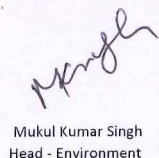 Mukul Kumar Singh
Head - Environment